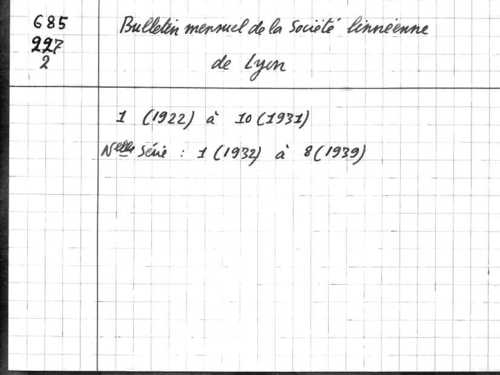 685
227
2
Bulletin mensuel de la Société linnéenne
de Lyon
1 (1922) à 10 (1931)
Nelle Série : 1 (1932) à 8 (1939)